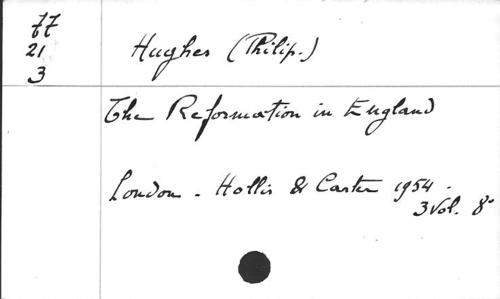 77
21
3
Hughes (Philip.)
The Reformation in England
London - Hollis & Carter 1954.
3 Vol. 8°